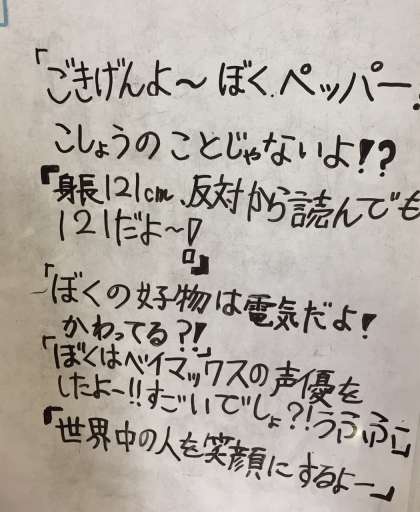 「ごきげんよ〜 ぼく、ペッパー!
こしょうのことじゃないよ!?
「身長121cm、反対から読んでも
121だよ〜!」
「ぼくの好物は電気だよ!
かわってる?!」
「ぼくはベイマックスの声優を
したよー!!すごいでしょ?!うふふ」
「世界中の人を笑顔にするよー」